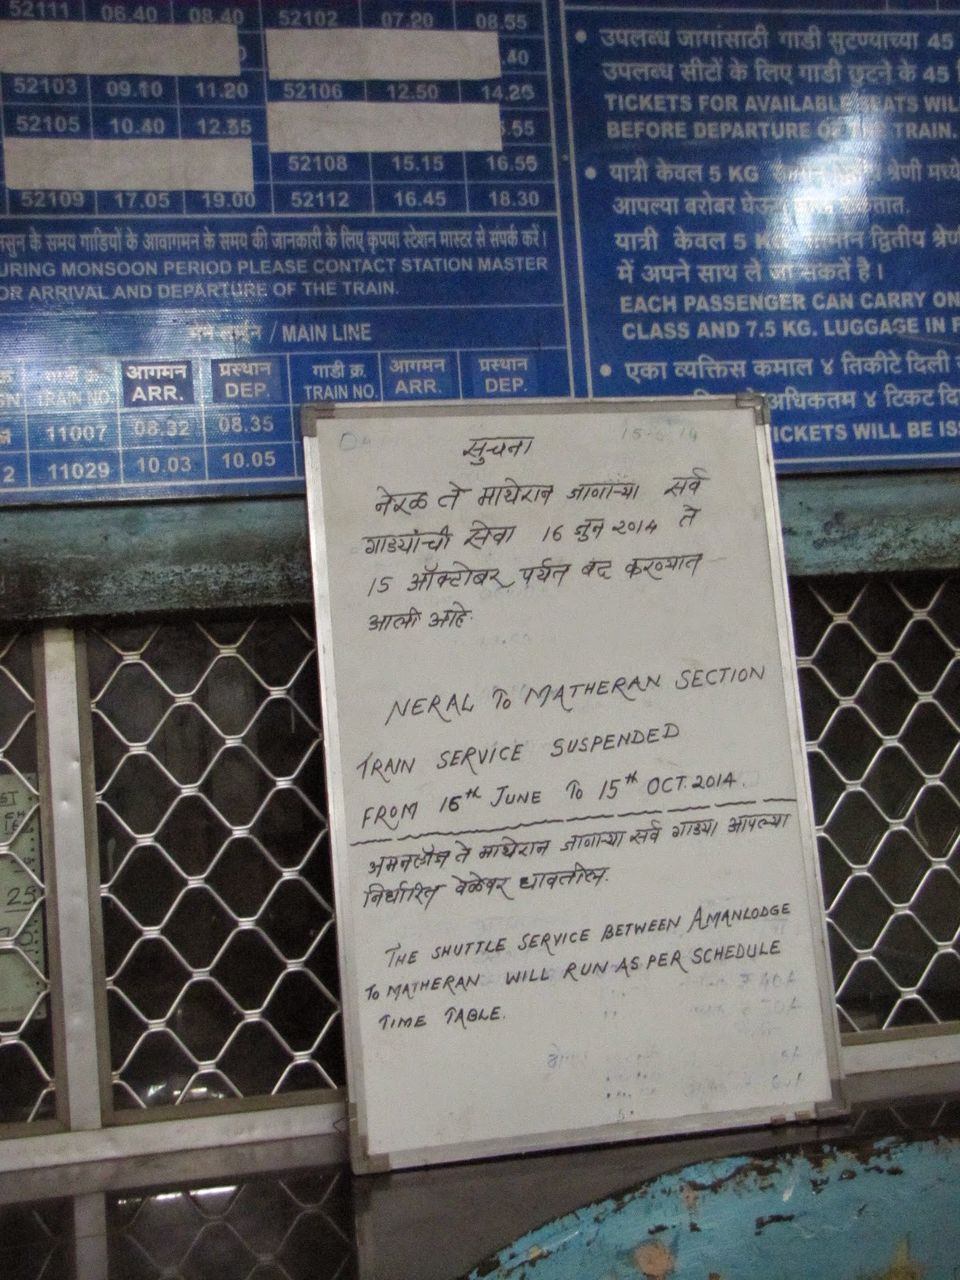 52111 06.40 08.40 52102 07.20 08.55
.40
52103 09.10 11.20 52106 12.50 14.25
52105 10.40 12.35 .55
52108 15.15 16.55
52109 17.05 19.00 52112 16.45 18.30
के समय गाडियों के आवागमन के समय की जानकारी के लिए कृपया स्टेशन मास्टर से संपर्क करें।
URING MONSOON PERIOD PLEASE CONTACT STATION MASTER
OR ARRIVAL AND DEPARTURE OF THE TRAIN.
/ MAIN LINE
गाडी क्र. आगमन प्रस्थान गाडी क्र. आगमन प्रस्थान
TRAIN NO. ARR. DEP. TRAIN NO. ARR. DEP.
11007 08.32 08.35
2 11029 10.03 10.05
• उपलब्ध जागांसाठी गाडी सुटण्याच्या 45
उपलब्ध सीटों के लिए गाडी छूटने के 45
TICKETS FOR AVAILABLE SEATS WIL
BEFORE DEPARTURE OF THE TRAIN.
• यात्री केवल 5 KG श्रेणी मध्ये
आपल्या बरोबर
यात्री केवल 5 K सामान द्वितीय श्रेणी
में अपने साथ ले जा सकतें है।
EACH PASSENGER CAN CARRY ON
CLASS AND 7.5 KG. LUGGAGE IN F
• एका व्यक्तिस कमाल ४ तिकीटे दिली
अधिकतम ४ टिकट दि
ICKETS WILL BE IS
सुचना
नेरळ ते माथेरान जाणाऱ्या सर्व
गाड्यांची सेवा 16 जुन 2014 ते
15 ऑक्टोबर पर्यंत बंद करण्यात
आली आहे.
NERAL TO MATHERAN SECTION
TRAIN SERVICE SUSPENDED
FROM 16TH JUNE TO 15TH OCT. 2014.
अमनलॉज ते माथेरान जाणाऱ्या सर्व गाड्या आपल्या
निर्धारित वेळेवर धावतील.
THE SHUTTLE SERVICE BETWEEN AMANLODGE
TO MATHERAN WILL RUN AS PER SCHEDULE
TIME TABLE.